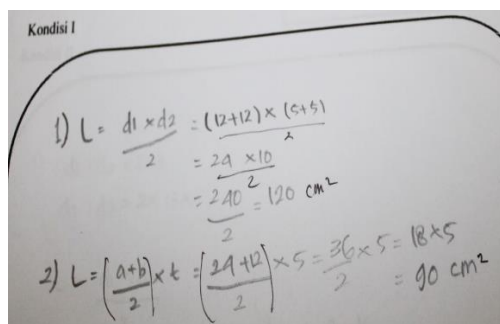 Kondisi I
1) L = d1 x d2 / 2 = (12+12) x (5+5) / 2
= 24 x 10 / 2
= 240 / 2 = 120 cm²
2) L = (a+b / 2) x t = (24+12 / 2) x 5 = 36 / 2 x 5 = 18 x 5
= 90 cm²